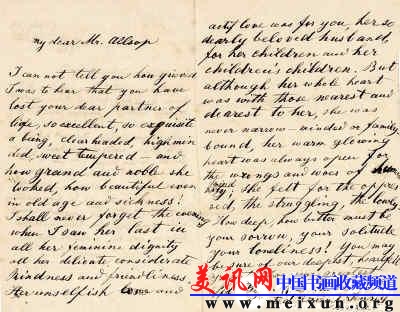 my dear Mr. Allsop
I can not tell you how grieved
I was to hear that you have
lost your dear partner of
life, so excellent, so exquisite
a being, clearheaded, high min
ded, sweet tempered – and
how grand and noble she
looked, how beautiful even
in old age and sickness!
I shall never forget the evening
when I saw her last in
all her feminine dignity
all her delicate considerate
kindness and friendliness
Her unselfish and
love was for you, her so
dearly beloved husband,
for her children and her
children's children. But
although her whole heart
was with those nearest and
dearest to her, she was
never narrow-minded or family
bound, her warm glowing
heart was always open for
the wrongs and woes of
She felt for the oppres
sed, the struggling, the lonely
How deep, how bitter must be
your sorrow, your solitude
your loneliness! You may
be sure of our deepest, heartfelt
美讯网 中国书画收藏频道
www.meixun.org